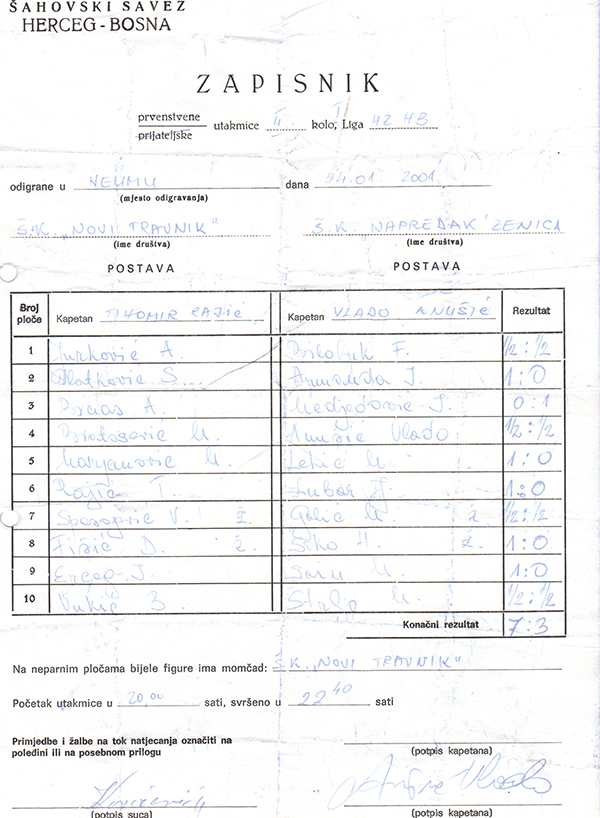 ŠAHOVSKI SAVEZ
HERCEG-BOSNA
ZAPISNIK
prvenstvene
prijateljske
utakmice II kolo, I Liga 42 HB
odigrane u NEUMU dana 24.01 2001
(mjesto odigravanja)
Š.K. „NOVI TRAVNIK" Š. K. „NAPREDAK" ZENICA
(ime društva) (ime društva)
POSTAVA POSTAVA
Broj ploče Kapetan TIHOMIR RAJIĆ Kapetan VLADO ANUŠIĆ Rezultat
1 Jurković A. F. 1/2 : 1/2
2 Zlatković S... J. 1:0
3 A. Medjedović J. 0:1
4 M. Anušić Vlado 1/2 : 1/2
5 Marjanović M. Lekić M. 1:0
6 Rajić T. Ljubas J. 1:0
7 V. ž. Galić M. ž. 1/2 : 1/2
8 Fišić D. ž. H. ž. 1:0
9 Erceg J. M. 1:0
10 Vukić Z. M. 1/2 : 1/2
Konačni rezultat 7:3
Na neparnim pločama bijele figure ima momčad: Š.K. „NOVI TRAVNIK"
Početak utakmice u 20,00 sati, svršeno u 22 40 sati
Primjedbe i žalbe na tok natjecanja označiti na
poleđini ili na posebnom prilogu
(potpis kapetana)
Anušić Vlado
(potpis suca) (potpis kapetana)